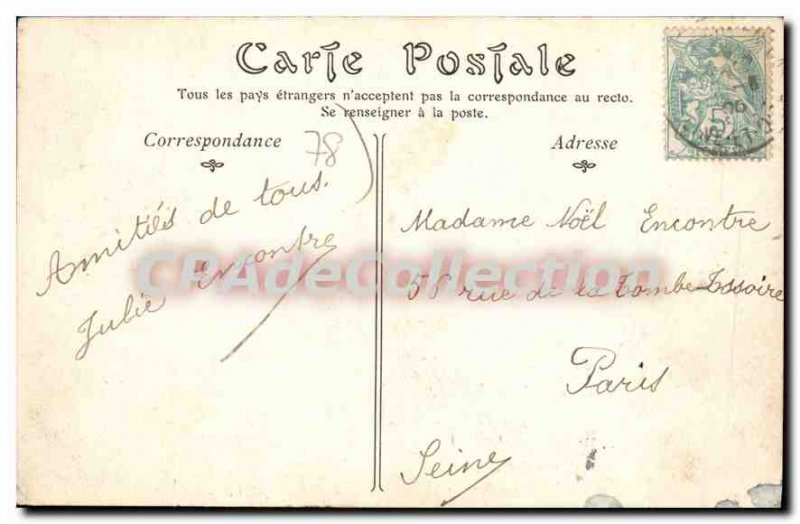 Carte Postale
Tous les pays étrangers n'acceptent pas la correspondance au recto.
Se renseigner à la poste.
Correspondance
78
Adresse
Amitiés de tous.
Julie Encontre
Madame Noël Encontre
58 rue de la Tombe-Issoire
Paris
Seine
CPAdeCollection